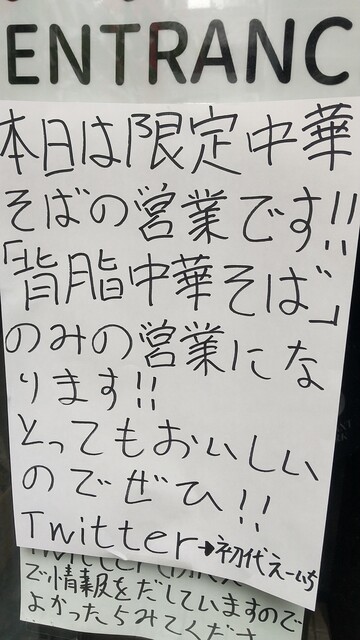 ENTRANC
本日は限定中華
そばの営業です!!
「背脂中華そば」
のみの営業にな
ります!!
とってもおいしい
のでぜひ!!
Twitter→初代えーいち
で情報をだしていますので
よかったらみてくださ